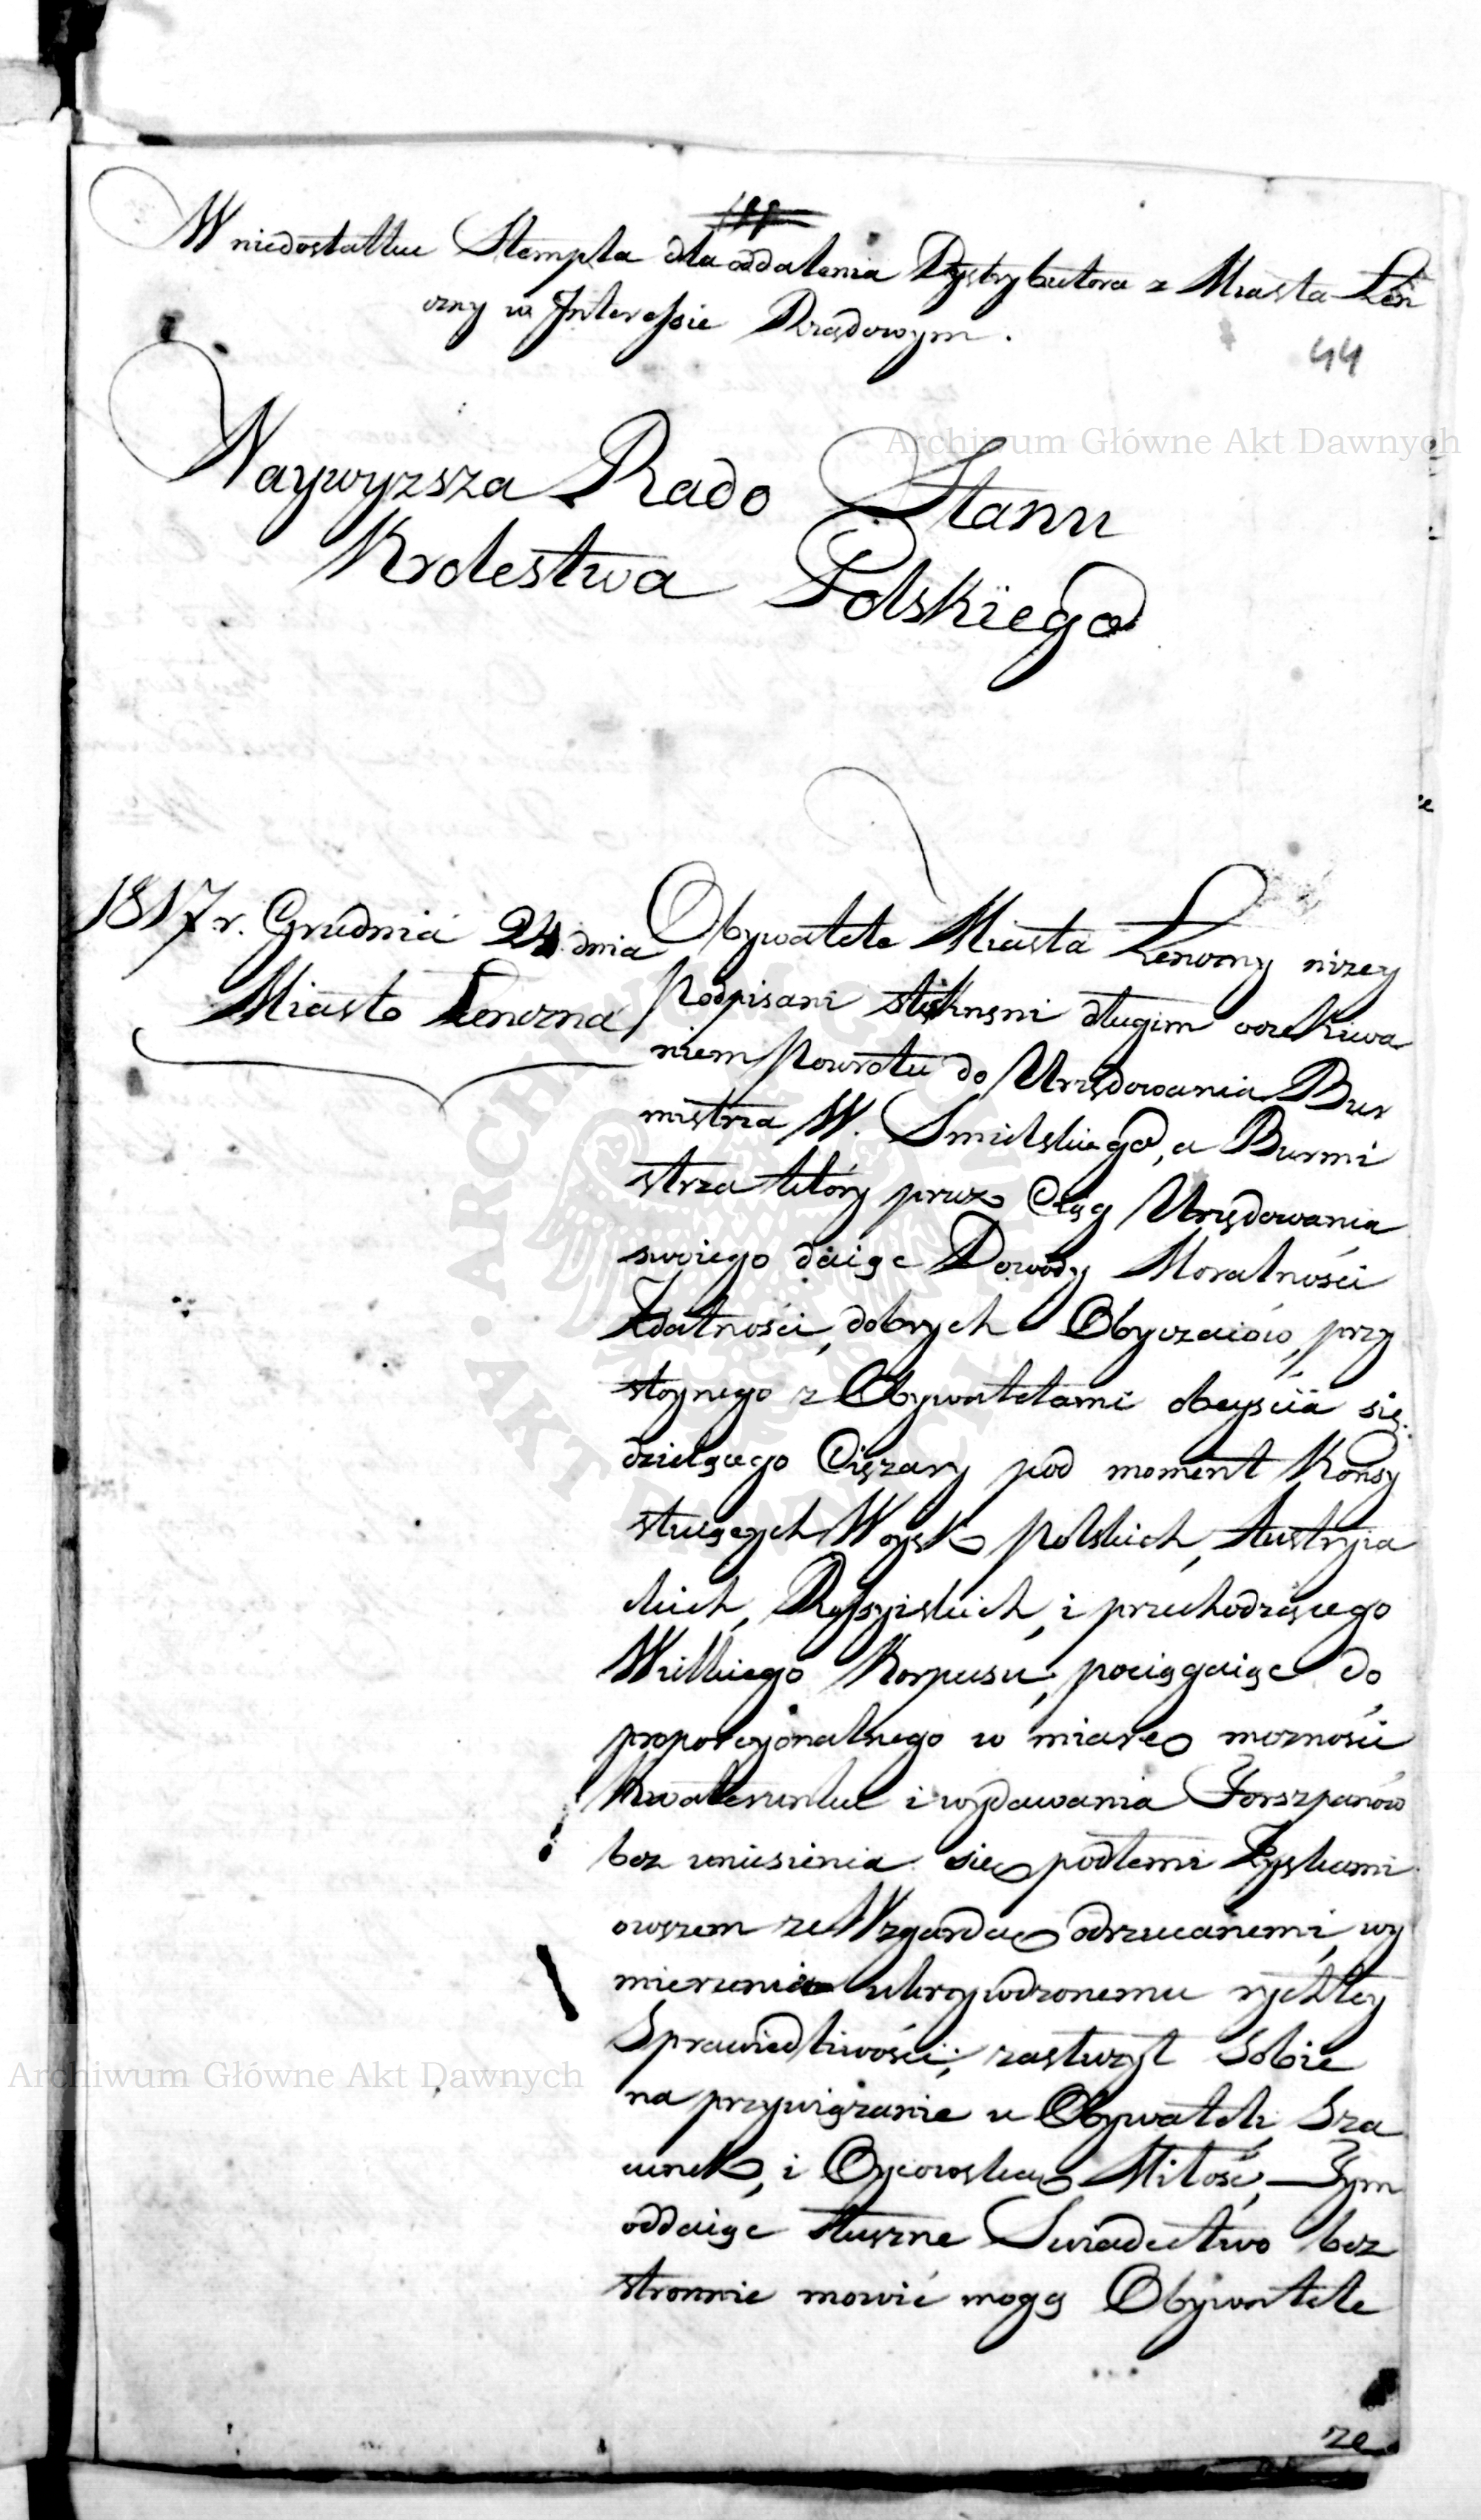 W niedostatku Stempla dla oddalenia Dystrybutora z Miasta Łen
czny w Interessie Rządowym.
44
Naywyzsza Rado Stanu
Krolestwa Polskiego
1817 r. Grudnia 24 dnia
Miasto Lenczna
Obywatele Miasta Łenczny nizey
Podpisani stęsknęni długim oczekiwa
niem Powrotu do Urzędowania Bur
mistrza W. Smielskiego, a Burmi
strza który przez Ciąg Urzędowania
swoiego daiąc Dowody Moralności
Zdatności, dobrych Obyczaiów, przy
stoynego z Obywatelami obeyścia się
dzielącego Ciężary pod moment Konsy
stuiących Woysk Polskich, Austryia
ckich, Rossyiskich, i przechodzącego
Wielkiego Korpusu, pociągaiąc do
proporcyonalnego w miare mozności
Kwaterunku i wydawania Forszpanów
bez uniesienia sie podłemi Zyskami
owszem ze Wzgarda odrzucanemi, wy
mierzenia ukrzywdzonemu rychłey
Sprawiedliwości; zasłuzył Sobie
na przywiązanie u Obywateli, Sza
cunek, i Oycowska Miłość, — Tym
oddaiąc słuszne Swiadectwo bez
stronnie mowić mogą Obywatele
ze
Archiwum Główne Akt Dawnych
Archiwum Główne Akt Dawnych
ARCHIWUM GŁÓWNE AKT DAWNYCH